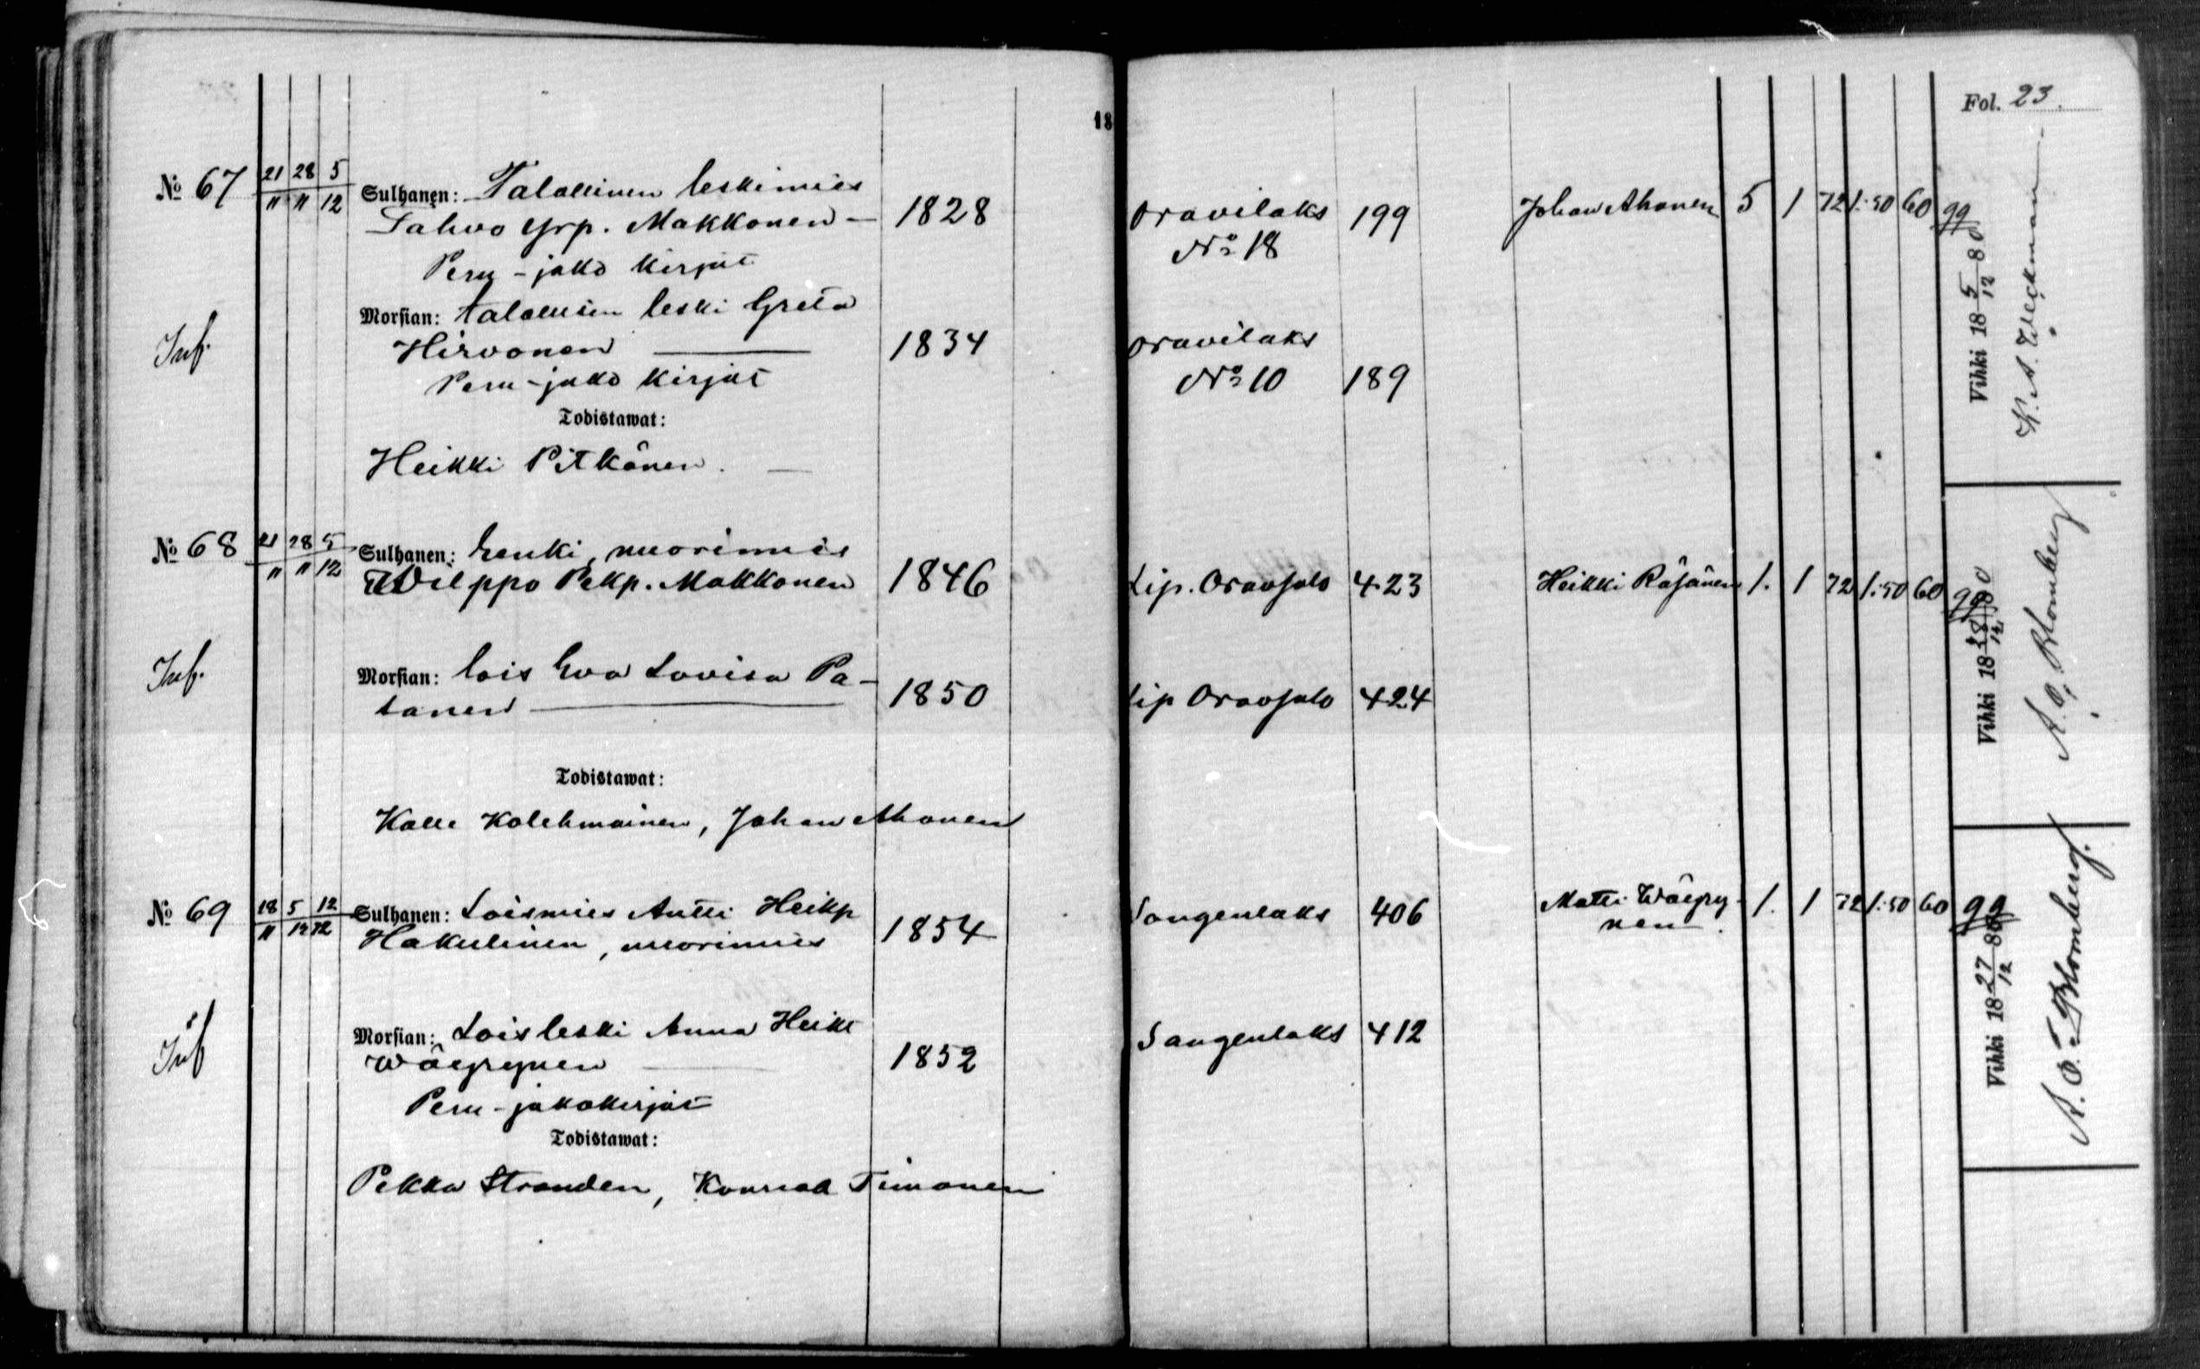 18
Fol. 23.
№ 67 21/11 28/11 5/12 Sulhanen: Talollinen leskimies
Pahvo Yrp. Makkonen — 1828 Oravilaks 199 Johan Ahonen 5 1 72 1:50 60 gg
№ 18
Peru-jako kirjat
Morsian: talollisen leski Greta
Inf. Hirvonen — 1834 Oravilaks
Peru-jako kirjat № 10 189
Todistawat:
Heikki Pitkänen. —
Vihki 18 5/12 80
K. A. Weckman
№ 68 21/11 28/11 5/12 Sulhanen: Renki, nuorimies
Wilppo Pekp. Makkonen 1846 Lip. Oravsalo 423 Heikki Räsänen 1. 1 72 1:50 60 gg
Inf. Morsian: lois Eva Lovisa Pa-
tanen — 1850 Lip Oravsalo 424
Todistawat:
Kalle Kolehmainen, Johan Ahonen
Vihki 18 28/12 80
A. O. Blomberg
№ 69 18/11 5/12 12/12 Sulhanen: Loismies Antti Heikp
Hakulinen, nuorimies 1854 Sangenlaks 406 Matti Wäyry-
nen 1. 1 72 1:50 60 gg
Inf Morsian: Loisleski Anna Heikt
Wäyrynen — 1852 Sangenlaks 412
Peru-jakokirjat
Todistawat:
Pekka Stranden, Konrad Timonen
Vihki 18 27/12 80
A. O. Blomberg.